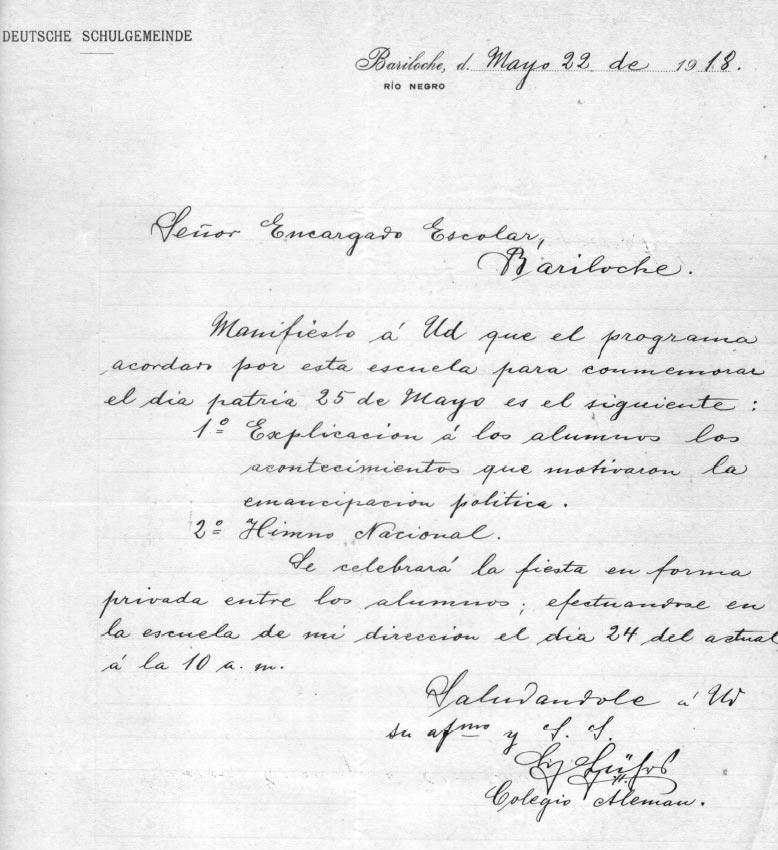 DEUTSCHE SCHULGEMEINDE
Bariloche, d. Mayo 22 de 1918.
RÍO NEGRO
Señor Encargado Escolar,
Bariloche.
Manifiesto á Ud que el programa
acordado por esta escuela para conmemorar
el dia patria 25 de Mayo es el siguiente:
1º Explicacion á los alumnos los
acontecimientos que motivaron la
emancipacion politica.
2º Himno Nacional.
Se celebrará la fiesta en forma
privada entre los alumnos; efectuandose en
la escuela de mi direccion el dia 24 del actual,
á la 10 a.m.
Saludandole á Ud
su afmo y S. S.
Colegio Aleman.